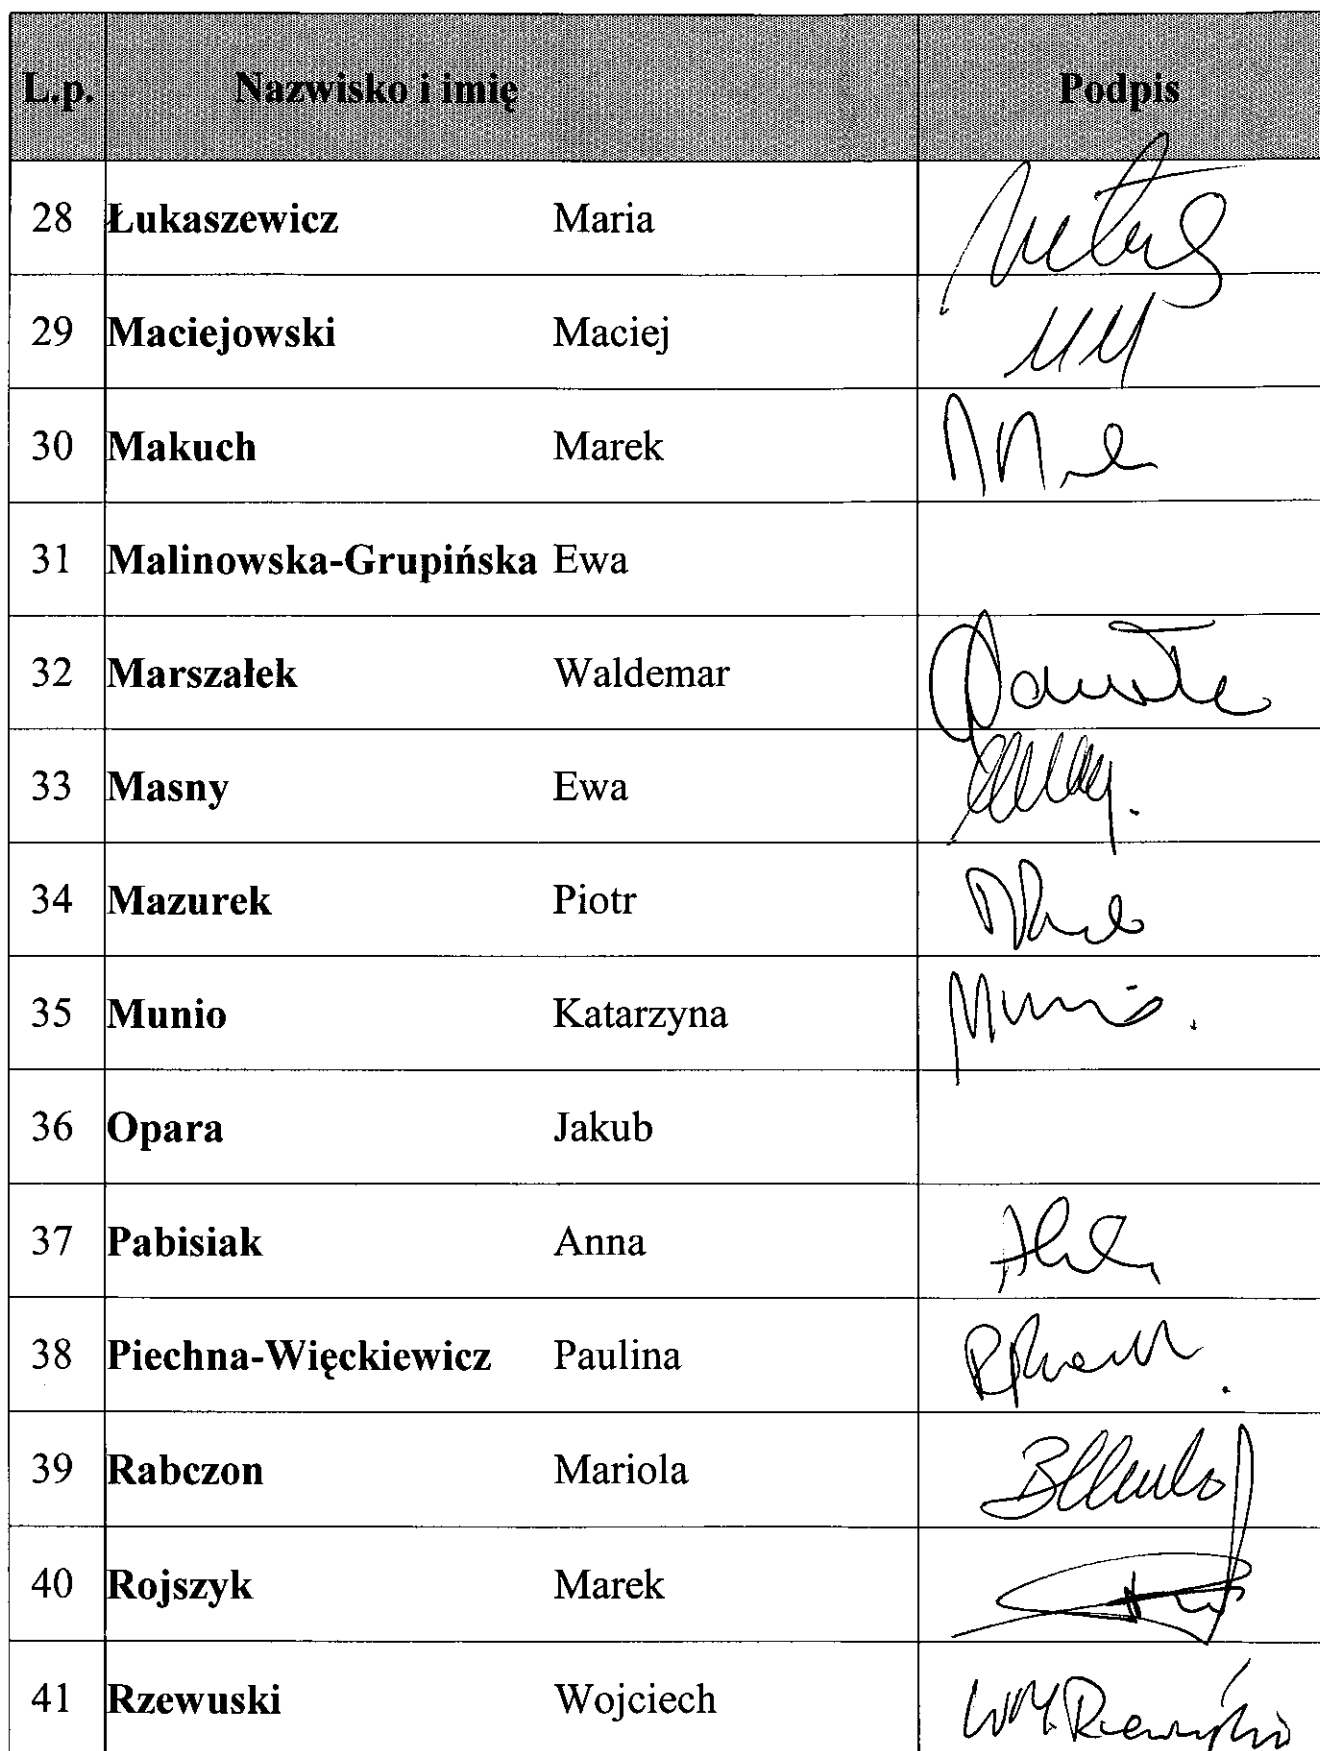 L.p. Nazwisko i imię Podpis
28 Łukaszewicz Maria
29 Maciejowski Maciej MM
30 Makuch Marek
31 Malinowska-Grupińska Ewa
32 Marszałek Waldemar
33 Masny Ewa
34 Mazurek Piotr
35 Munio Katarzyna Munio.
36 Opara Jakub
37 Pabisiak Anna
38 Piechna-Więckiewicz Paulina
39 Rabczon Mariola
40 Rojszyk Marek
41 Rzewuski Wojciech WM.Rzewuski